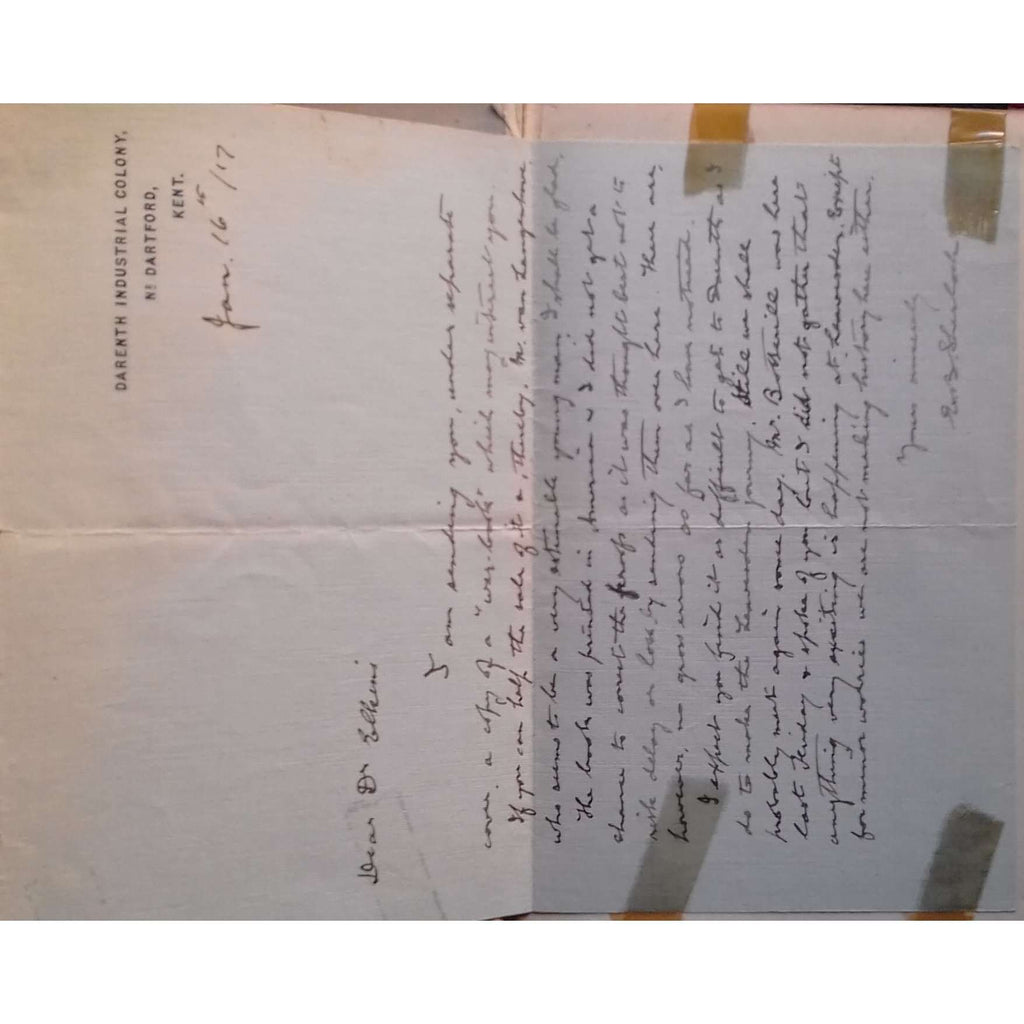 DARENTH INDUSTRIAL COLONY,
Nr DARTFORD,
KENT.
Jan. 16th /17
Dear Dr Elkins
I am sending you, under separate
cover a copy of a "war-book" which may interest you.
If you can help the sale of it a, thereby, Mr. van
who seems to be a very estimable young man I shall be glad.
The book was printed in America & I did not get a
chance to correct the proofs as it was thought best not to
risk delay or loss by sending them over here. There are,
however, no gross errors so far as I have noticed.
I expect you find it as difficult to get to Darenth as I
do to make the Leavesden journey. Still we shall
probably meet again some day. Mr. Botterill was here
last Friday & spoke of you but I did not gather that
anything very exciting is happening at Leavesden. Except
for minor worries we are not making history here either.
Yours sincerely